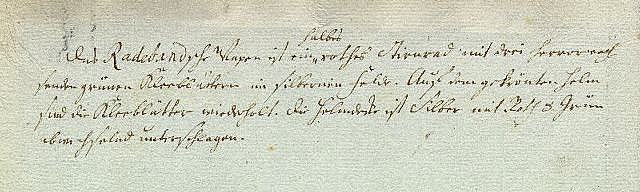 halbes
Das Radebandsche Wapen ist ein rothes Stirnrad mit drei hervorwach
senden grünen Kleeblättern im silbernen Felde. Auf dem gekrönten Helm
sind die Kleeblätter wiederholt. Die Helmdecke ist Silber mit Roth & Grün
abwechselnd unterschlagen.